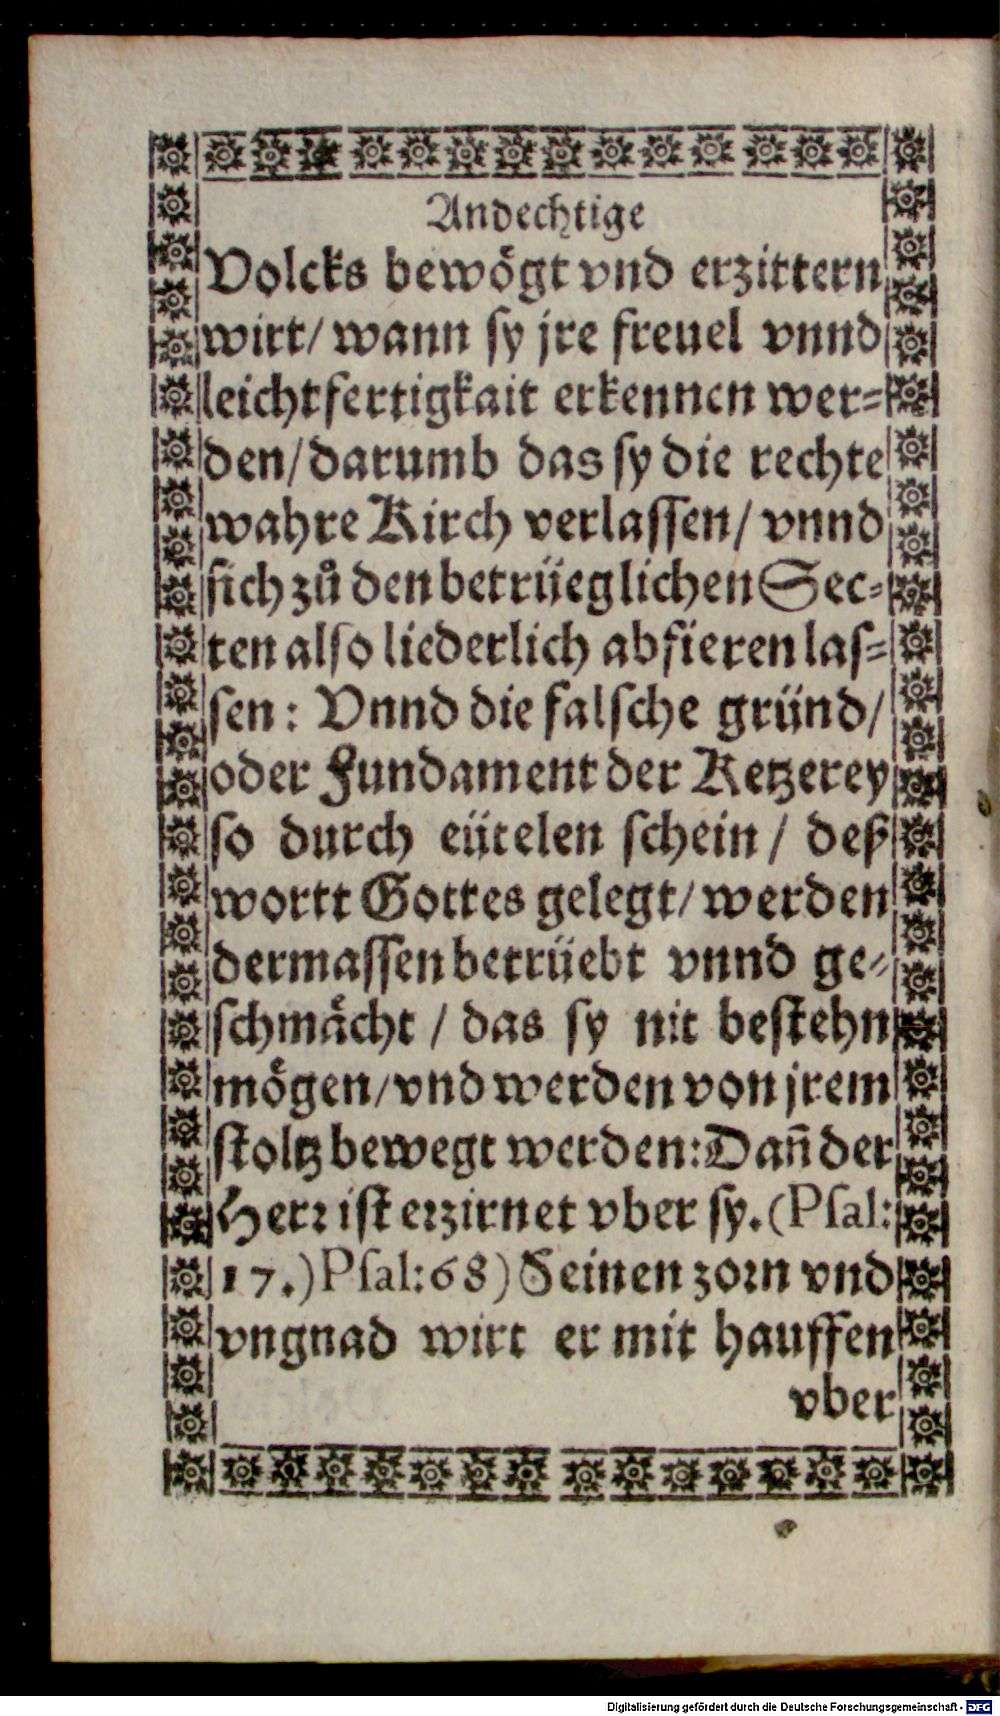 Andechtige
Volcks bewoͤgt vnd erzittern
wirt/ wann sy jre freuel vnnd
leichtfertigkait erkennen wer⸗
den/ darumb das sy die rechte
wahre Kirch verlassen/ vnnd
sich zuͦ den betrüeglichen Sec⸗
ten also liederlich abfieren las⸗
sen: Vnnd die falsche gründ/
oder Fundament der Ketzerey
so durch eütelen schein / deß
wortt Gottes gelegt/ werden
dermassen betrüebt vnnd ge⸗
schmaͤcht / das sy nit bestehn
moͤgen/ vnd werden von jrem
stoltz bewegt werden: Dañ der
Herr ist erzirnet vber sy. (Psal:
17.) Psal: 68) Seinen zorn vnd
vngnad wirt er mit hauffen
vber
Digitalisierung gefördert durch die Deutsche Forschungsgemeinschaft - DFG